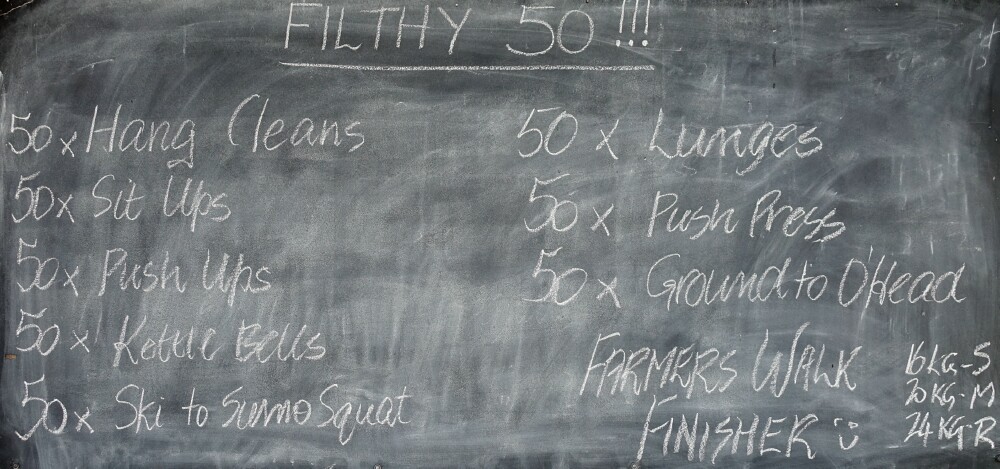 FILTHY 50!!!
50x Hang Cleans
50x Sit Ups
50x Push Ups
50x Kettle Bells
50x Ski to Sumo Squat
50 x Lunges
50 x Push Press
50 x Ground to O'Head
FARMERS WALK
FINISHER :)
16KG-S
20KG-M
24KG-R